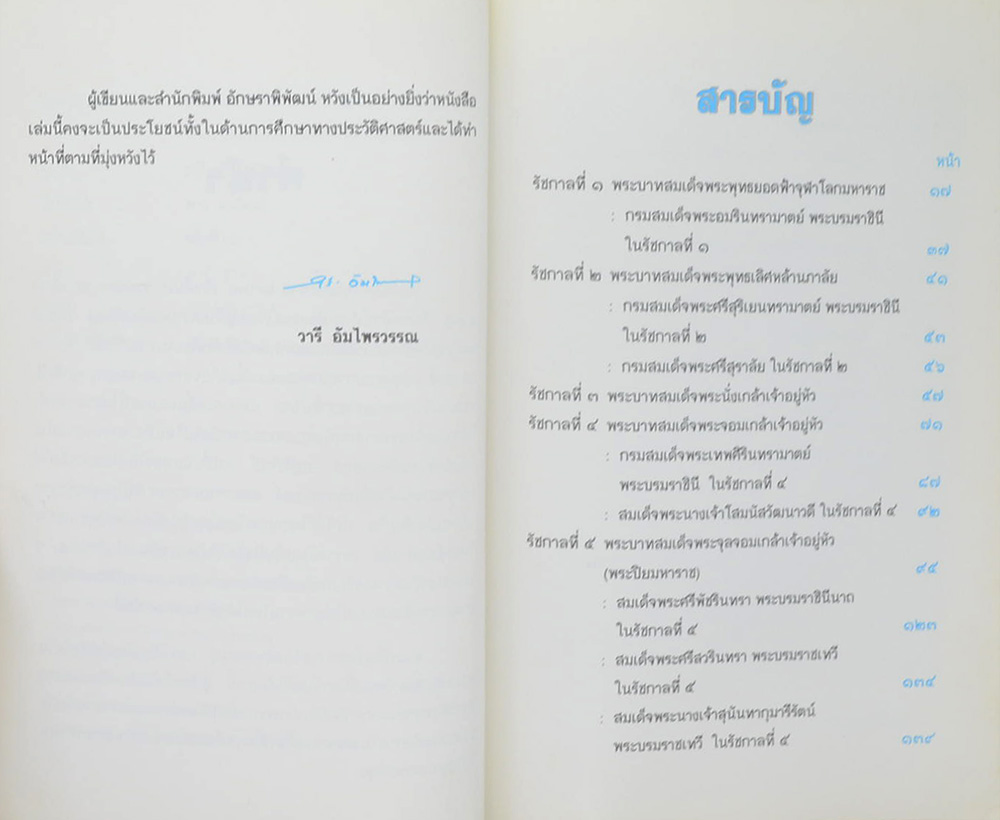 ผู้เขียนและสำนักพิมพ์ อักษราพิพัฒน์ หวังเป็นอย่างยิ่งว่าหนังสือ
เล่มนี้คงจะเป็นประโยชน์ทั้งในด้านการศึกษาทางประวัติศาสตร์และได้ทำ
หน้าที่ตามที่มุ่งหวังไว้
วารี อัมไพรวรรณ
สารบัญ
หน้า
รัชกาลที่ ๑ พระบาทสมเด็จพระพุทธยอดฟ้าจุฬาโลกมหาราช ๑๗
: กรมสมเด็จพระอมรินทรามาตย์ พระบรมราชินี
ในรัชกาลที่ ๑ ๓๗
รัชกาลที่ ๒ พระบาทสมเด็จพระพุทธเลิศหล้านภาลัย ๔๑
: กรมสมเด็จพระศรีสุริเยนทรามาตย์ พระบรมราชินี
ในรัชกาลที่ ๒ ๕๓
: กรมสมเด็จพระศรีสุราลัย ในรัชกาลที่ ๒ ๕๖
รัชกาลที่ ๓ พระบาทสมเด็จพระนั่งเกล้าเจ้าอยู่หัว ๕๗
รัชกาลที่ ๔ พระบาทสมเด็จพระจอมเกล้าเจ้าอยู่หัว ๗๑
: กรมสมเด็จพระเทพศิรินทรามาตย์
พระบรมราชินี ในรัชกาลที่ ๔ ๘๗
: สมเด็จพระนางเจ้าโสมนัสวัฒนาวดี ในรัชกาลที่ ๔ ๙๒
รัชกาลที่ ๕ พระบาทสมเด็จพระจุลจอมเกล้าเจ้าอยู่หัว
(พระปิยมหาราช) ๙๕
: สมเด็จพระศรีพัชรินทรา พระบรมราชินีนาถ
ในรัชกาลที่ ๕ ๑๒๓
: สมเด็จพระศรีสวรินทรา พระบรมราชเทวี
ในรัชกาลที่ ๕ ๑๓๔
: สมเด็จพระนางเจ้าสุนันทากุมารีรัตน์
พระบรมราชเทวี ในรัชกาลที่ ๕ ๑๓๙